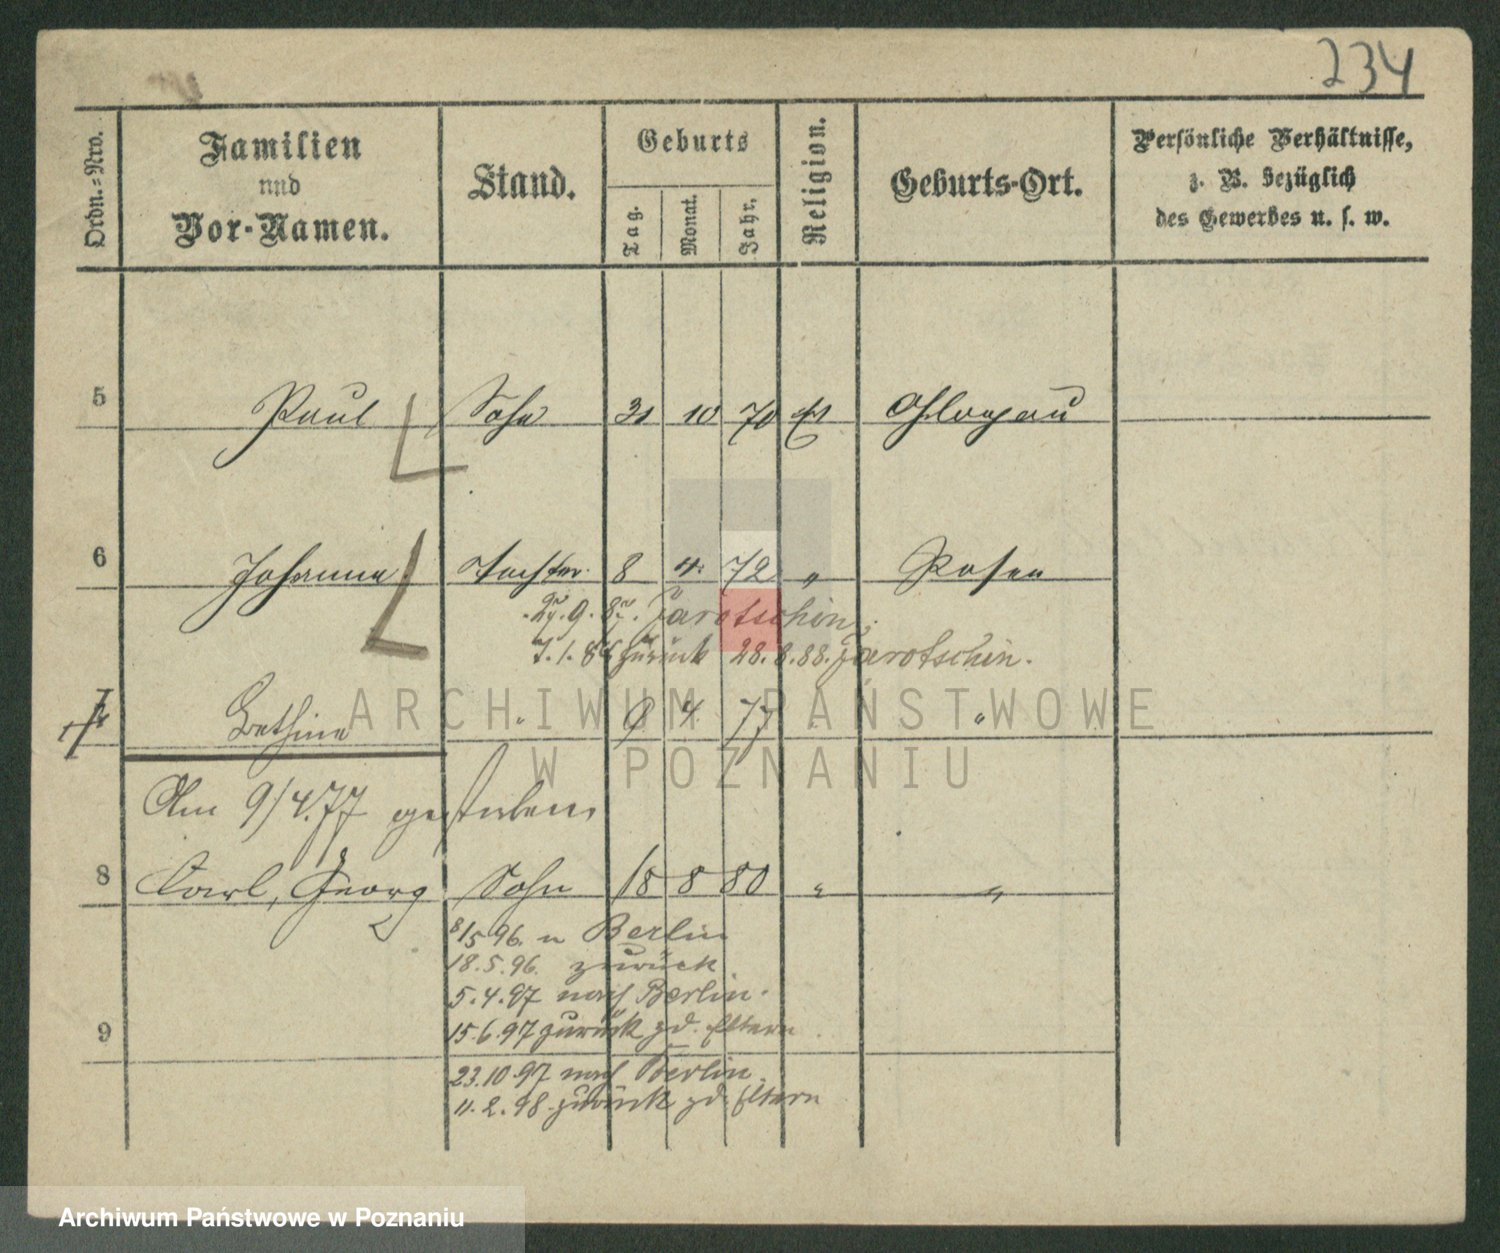 234
Ordn.=Nro.
Familien
und
Vor-Namen.
Stand.
Geburts
Tag.
Monat.
Jahr.
Religion.
Geburts-Ort.
Persönliche Verhältnisse,
z. B. bezüglich
des Gewerbes u. s. w.
5 Paul Sohn 31 10 70 Glogau
6 Johanna Tochter 8 4 72 " Posen
27.9.87. Jarotschin;
7.1.88 zurück 28.8.88. Jarotschin.
7 Bethina " 9 4 77 "
ARCHIWUM PAŃSTWOWE
W POZNANIU
Am 9/4.77 gestorben
8 Carl, Georg Sohn 18 8 80 " "
8/5 96. n Berlin
18.5.96. zurück
5.4.97 nach Berlin.
15.6.97 zurück z d. Eltern
9
23.10.97 nach Berlin.
11.2.98. zurück z d. Eltern
Archiwum Państwowe w Poznaniu